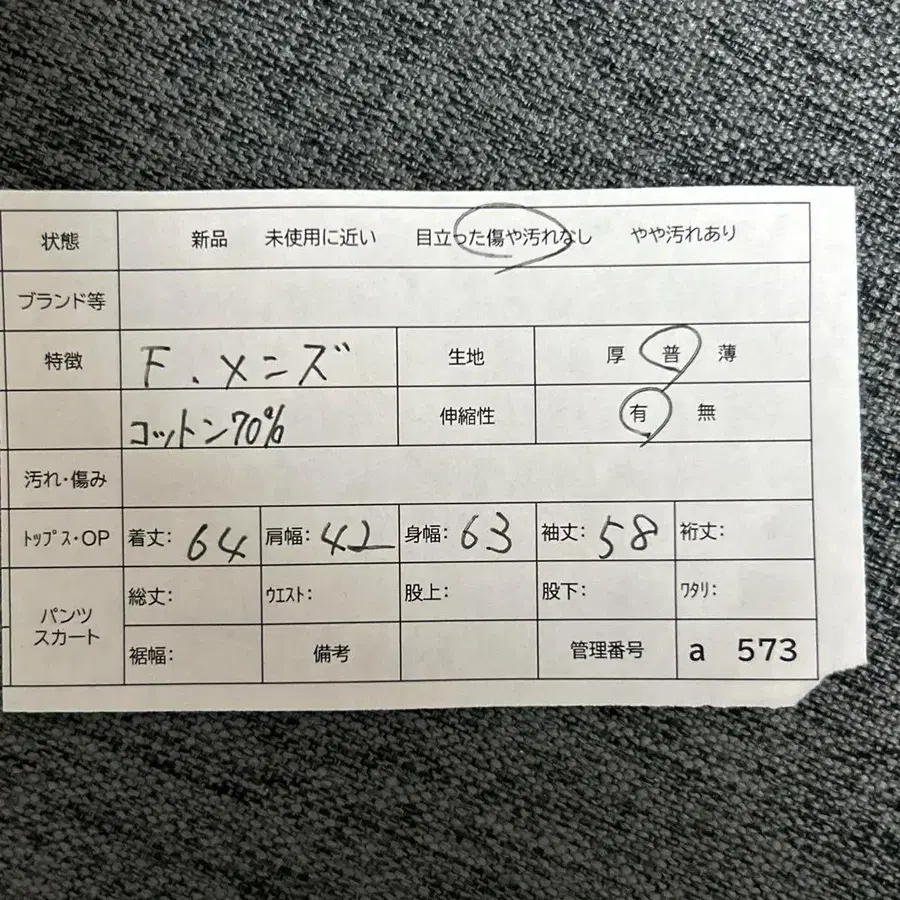 状態 新品 未使用に近い 目立った傷や汚れなし やや汚れあり
ブランド等
特徴 F.メンズ 生地 厚 普 薄
コットン70% 伸縮性 有 無
汚れ・傷み
トップス・OP 着丈: 64 肩幅: 42 身幅: 63 袖丈: 58 裄丈:
パンツ スカート 総丈: ウエスト: 股上: 股下: ワタリ:
裾幅: 備考 管理番号 a 573